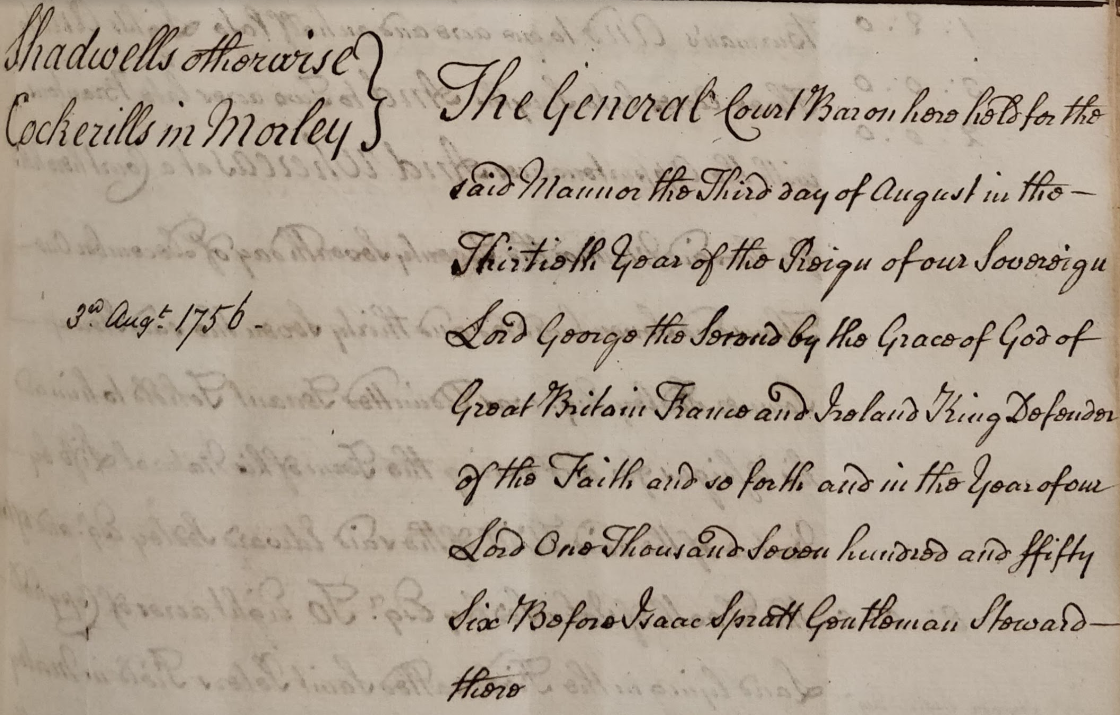 Shadwells otherwise
Cockerills in Morley
The General Court Baron here held for the
said Mannor the Third day of August in the —
Thirtieth Year of the Reign of our Sovereign
3rd. Augt. 1756 -
Lord George the Second by the Grace of God of
Great Britain France and Ireland King Defender
of the Faith and so forth and in the Year of our
Lord One Thousand Seven hundred and ffifty
Six Before Isaac Spratt Gentleman Steward —
there